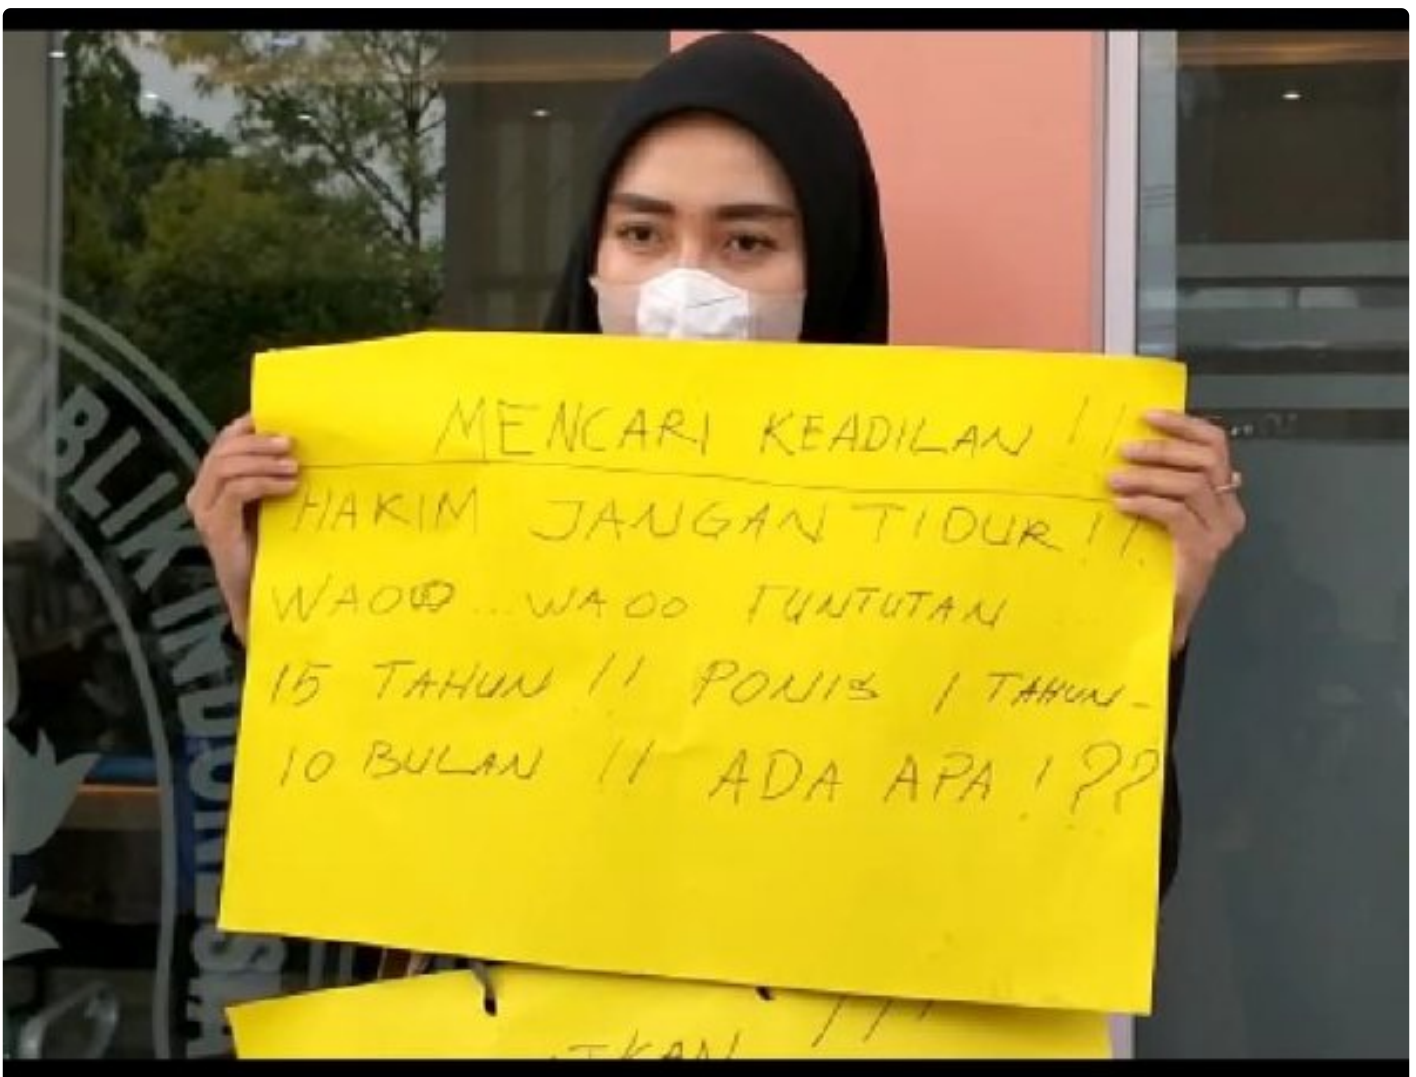 BLIK INDONESIA
MENCARI KEADILAN !!
HAKIM JANGAN TIDUR !!
WAOO .. WAOO TUNTUTAN
15 TAHUN !! PONIS 1 TAHUN -
10 BULAN !! ADA APA ! ??
IKAN !!!